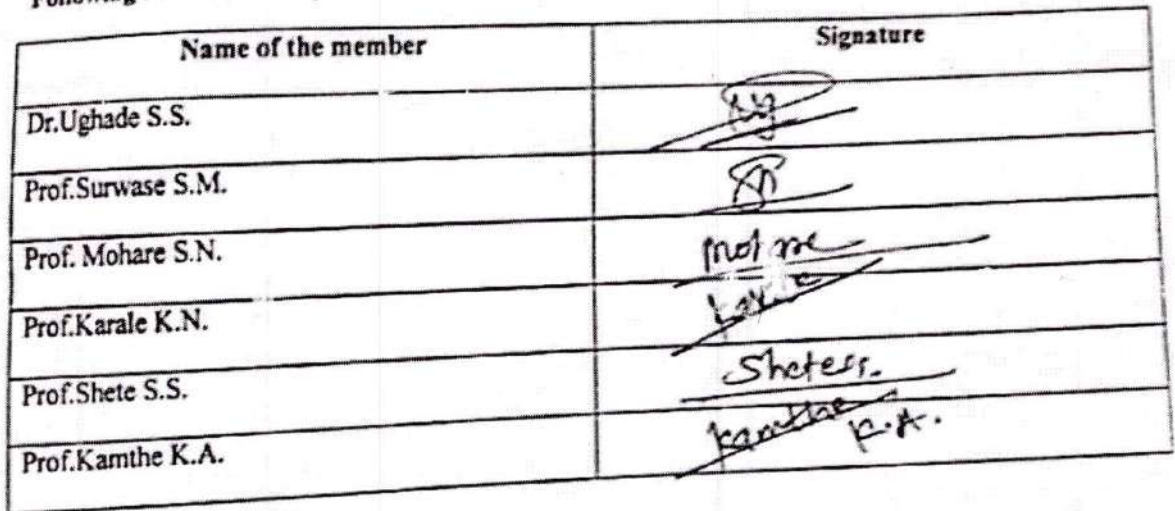 Following
Name of the member Signature
Dr.Ughade S.S.
Prof.Surwase S.M.
Prof. Mohare S.N.
Prof.Karale K.N.
Prof.Shete S.S. Shetess.
Prof.Kamthe K.A. Kamthe K.A.